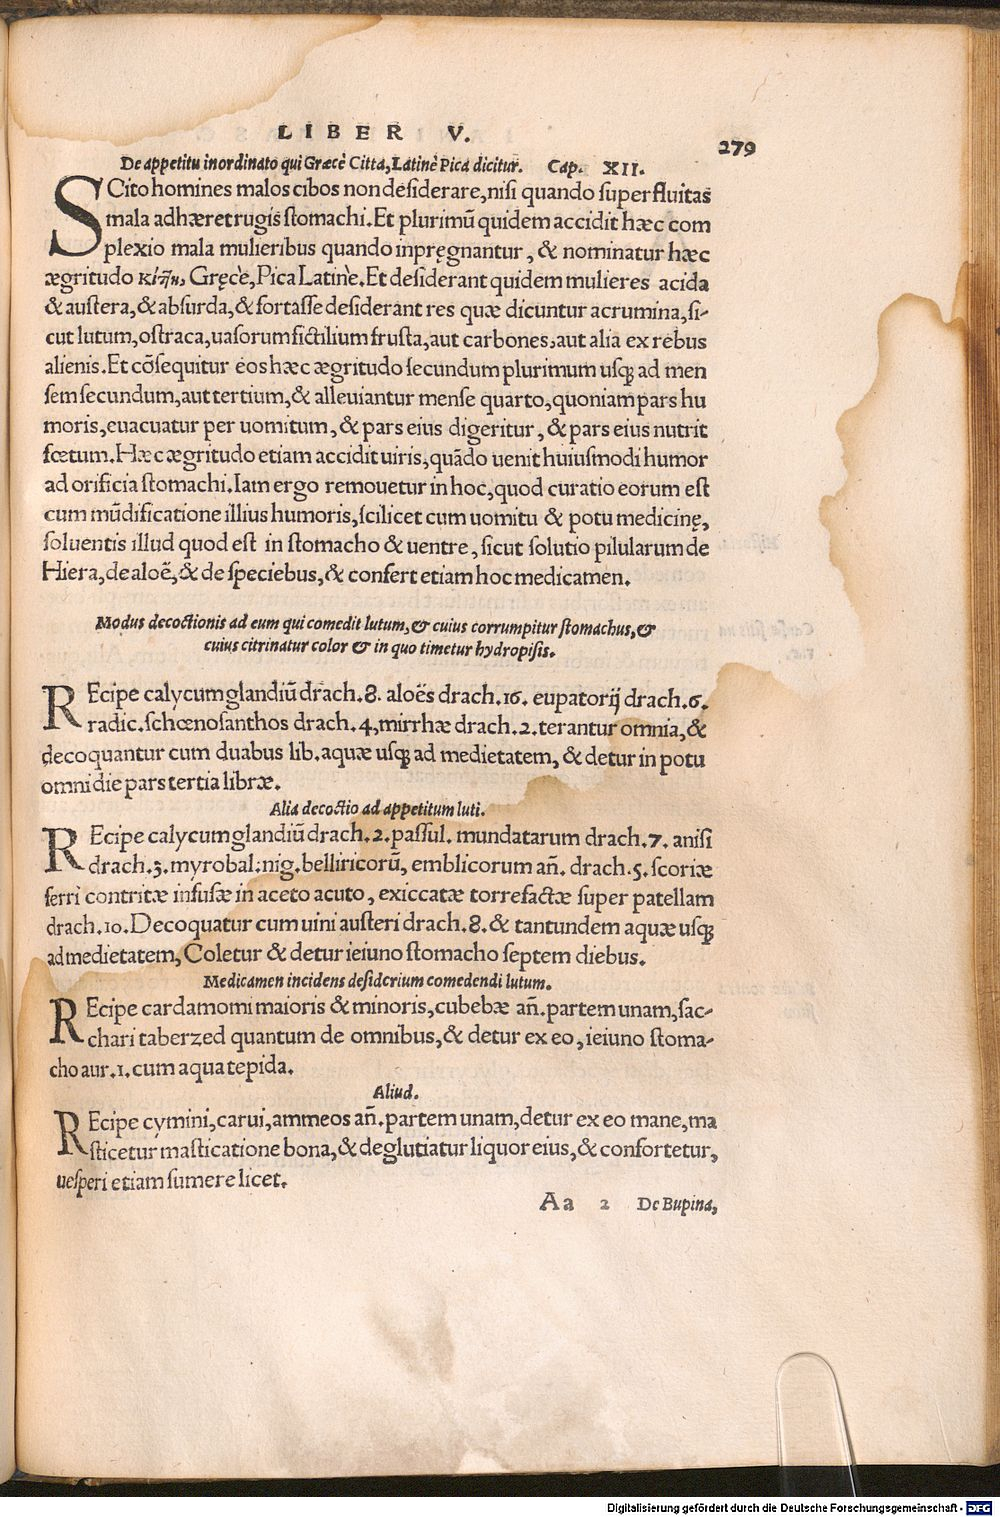 LIBER V.
279
De appetitu inordinato qui Græcè Citta, Latinè Pica dicitur. Cap. XII.
SCito homines malos cibos non desiderare, nisi quando superfluitas
mala adhæret rugis stomachi. Et plurimũ quidem accidit hæc com
plexio mala mulieribus quando inpręgnantur, & nominatur hæc
ægritudo Gręcè, Pica Latinè. Et desiderant quidem mulieres acida
& austera, & absurda, & fortasse desiderant res quæ dicuntur acrumina, si-
cut lutum, ostraca, uasorum fictilium frusta, aut carbones, aut alia ex rebus
alienis. Et cõsequitur eos hæc ægritudo secundum plurimum usq; ad men
sem secundum, aut tertium, & alleuiantur mense quarto, quoniam pars hu
moris, euacuatur per uomitum, & pars eius digeritur, & pars eius nutrit
fœtum. Hæc ægritudo etiam accidit uiris, quãdo uenit huiusmodi humor
ad orificia stomachi. Iam ergo remouetur in hoc, quod curatio eorum est
cum mũdificatione illius humoris, scilicet cum uomitu & potu medicinę,
soluentis illud quod est in stomacho & uentre, sicut solutio pilularum de
Hiera, de aloẽ, & de speciebus, & confert etiam hoc medicamen.
Modus decoctionis ad eum qui comedit lutum, & cuius corrumpitur stomachus, &
cuius citrinatur color & in quo timetur hydropisis.
REcipe calycum glandiũ drach. 8. aloës drach. 16. eupatorij drach. 6.
radic. schœnosanthos drach. 4, mirrhæ drach. 2. terantur omnia, &
decoquantur cum duabus lib. aquæ usq; ad medietatem, & detur in potu
omni die pars tertia libræ.
Alia decoctio ad appetitum luti.
REcipe calycum glandiũ drach. 2. passul. mundatarum drach. 7. anisi
drach. 3. myrobal. nig. belliricorũ, emblicorum añ. drach. 5. scoriæ
ferri contritæ infusæ in aceto acuto, exiccatæ torrefactæ super patellam
drach. 10. Decoquatur cum uini austeri drach. 8. & tantundem aquæ usq;
ad medietatem, Coletur & detur ieiuno stomacho septem diebus.
Medicamen incidens desiderium comedendi lutum.
REcipe cardamomi maioris & minoris, cubebæ añ. partem unam, sac-
chari taberzed quantum de omnibus, & detur ex eo, ieiuno stoma-
cho aur. 1. cum aqua tepida.
Aliud.
REcipe cymini, carui, ammeos añ. partem unam, detur ex eo mane, ma
sticetur masticatione bona, & deglutiatur liquor eius, & confortetur,
uesperi etiam sumere licet.
Aa 2 De Bupina,
Digitalisierung gefördert durch die Deutsche Forschungsgemeinschaft - DFG